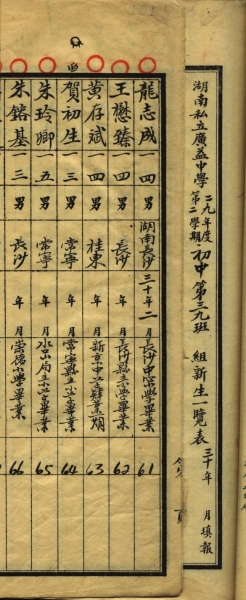 湖南私立廣益中學二九年度第二學期初中第三九班 組新生一覽表 三十年 月填報
龍志成 一四 男 湖南長沙 三十年二月 長沙中心小學畢業 61
王懋臻 一四 男 長沙 年 月 長沙縣立小學畢業 62
黄存斌 一四 男 桂東 年 月 新京中學肄業一期 63
賀初生 一三 男 常寧 年 月 常寧縣立小學畢業 64
朱玲卿 一五 男 常寧 年 月 水口局立小學畢業 65
朱鎔基 一三 男 長沙 年 月 崇德小學畢業 66